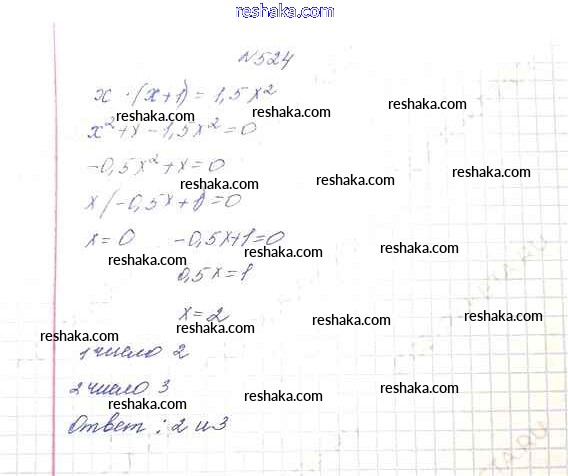 reshaka.com
№524
x · (x+1) = 1,5x²
reshaka.com reshaka.com reshaka.com
x²+x-1,5x²=0
-0,5x²+x=0
reshaka.com reshaka.com reshaka.com
x(-0,5x+1)=0
x=0 -0,5x+1=0
reshaka.com reshaka.com reshaka.com
0,5x=1
x=2
reshaka.com reshaka.com reshaka.com
1 число 2
2 число 3
reshaka.com reshaka.com reshaka.com
Ответ: 2 и 3